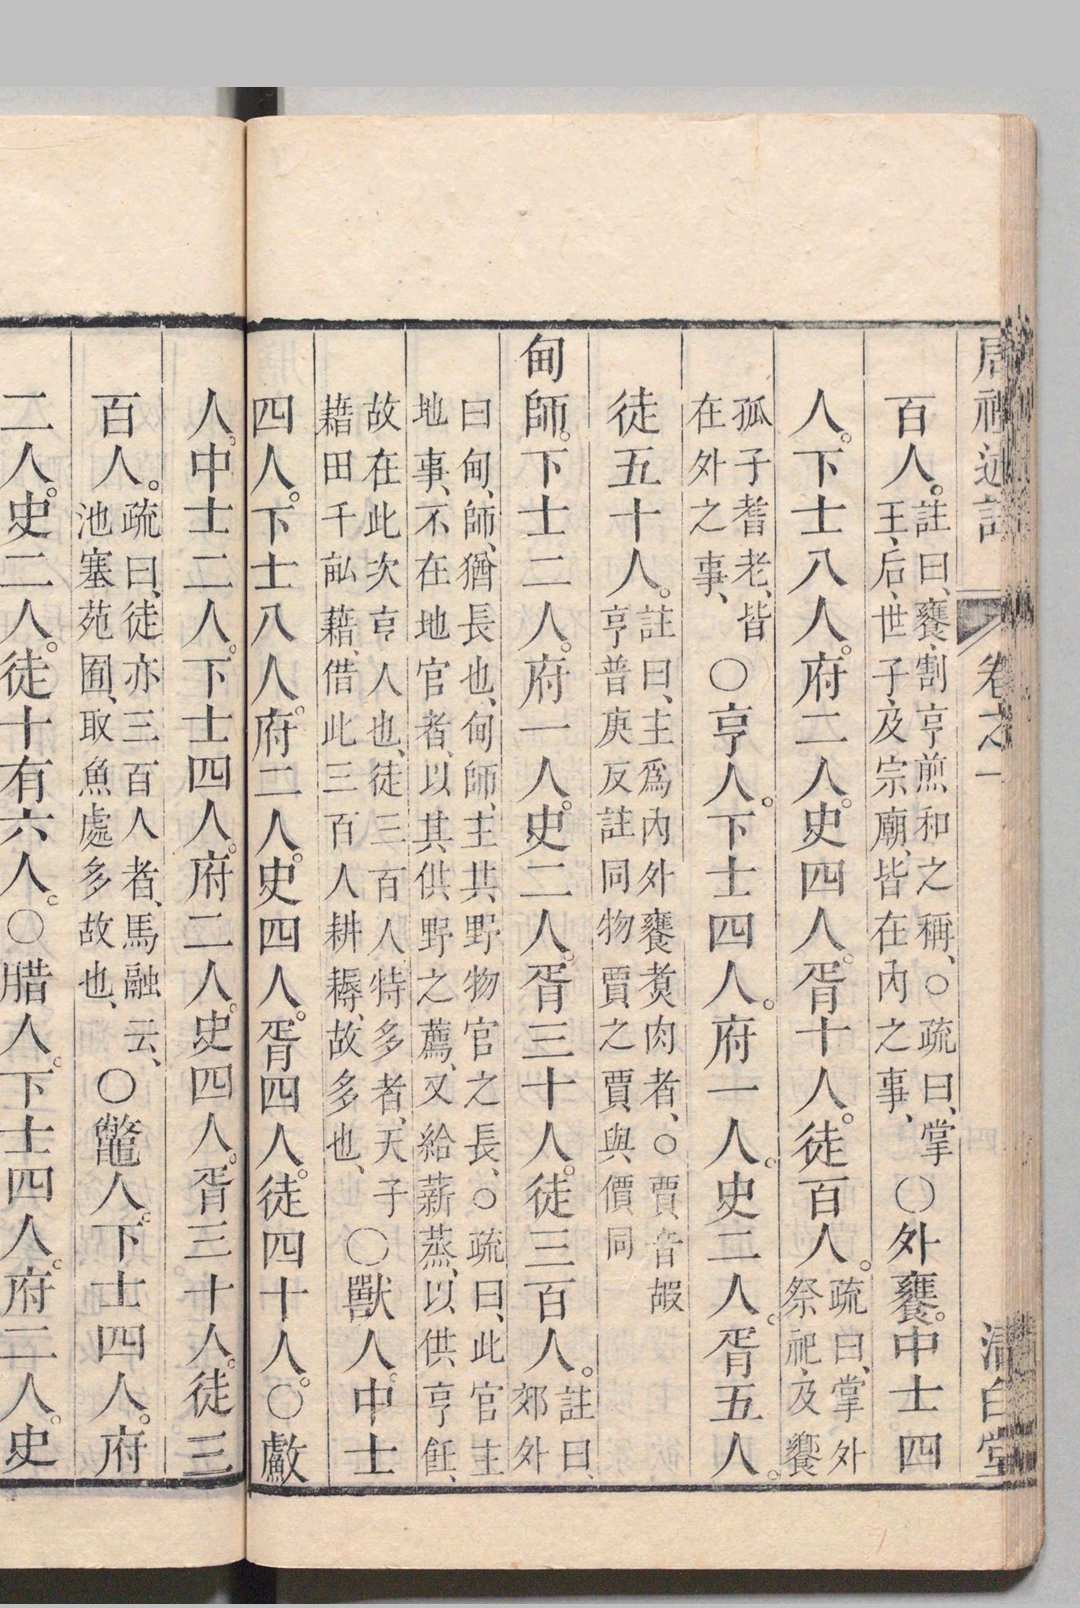 周禮述註 卷之一 清白堂
百人。註曰、饔、割亨煎和之稱、○疏曰、掌王、后、世子、及宗廟、皆在內之事、○外饔。中士四
人。下士八人。府二人。史四人。胥十人。徒百人。疏曰、掌外祭祀、及饗
孤子耆老、皆在外之事、○亨人。下士四人。府一人。史二人。胥五人。
徒五十人。註曰、主爲內外饔煑肉者、○賈、音嘏亨普庚反註同物賈、之賈、與、價同
甸師。下士二人。府一人。史二人。胥三十人。徒三百人。註曰、郊外
曰甸、師、猶長也、甸師、主共、野物官之長、○疏曰、此官主地事、不在地官者、以其供野之薦、又給薪蒸、以供、亨飪、
故在此次亨人也、徒三百人、特多者、天子藉田千畝藉、借此三百人耕耨、故多也、○獸人。中士
四人。下士八人。府二人。史四人。胥四人。徒四十人。○䱷
人。中士二人。下士四人。府二人。史四人。胥三十人。徒三
百人。疏曰、徒亦三百人者、馬融云、池塞苑囿、取魚處多故也、○鼈人。下士四人。府
二人。史二人。徒十有六人。○腊人。下士四人。府二人。史